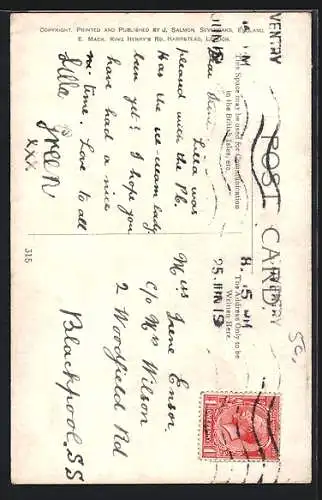 COPYRIGHT. PRINTED AND PUBLISHED BY J. SALMON, SEVENOAKS, ENGLAND.
E. MACK, KING HENRY'S RD. HAMPSTEAD, LONDON.
POST CARD.
This Space may be used for Communication
in the British Isles, etc.
The Address Only to be
Written Here.
Dear Irene, Lila was
pleased with the P.C.
Has the ice-cream lady
been yet? I hope you
have had a nice
time. Love to all
Lila
GREEN
xxx.
315
COVENTRY
8. 15 PM
25 JUN 19
Miss Irene Ensor
c/o Mrs Wilson
2 Woodfield Rd
Blackpool, SS
50,